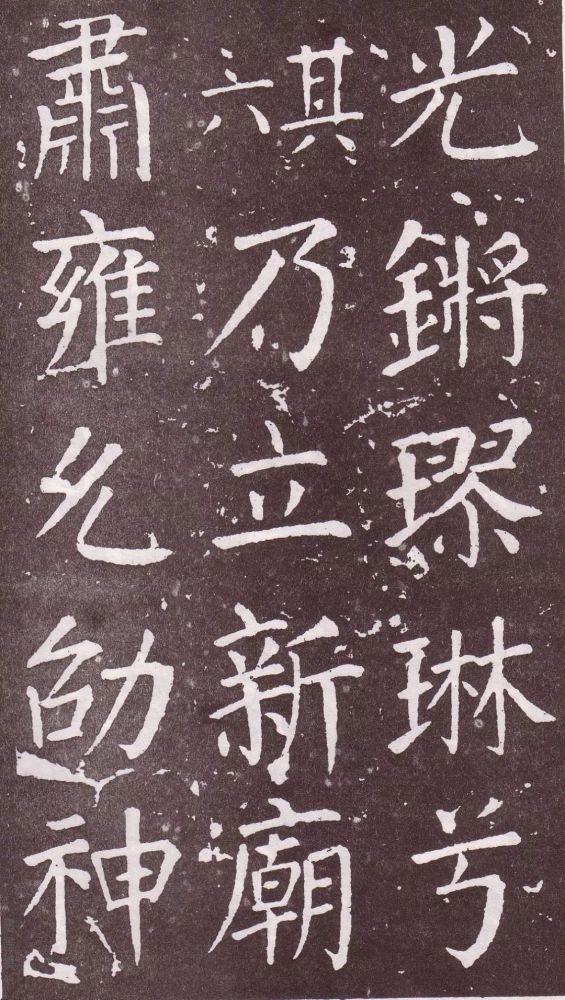 光鏘璆琳兮
其六乃立新廟
肅雍允劭神